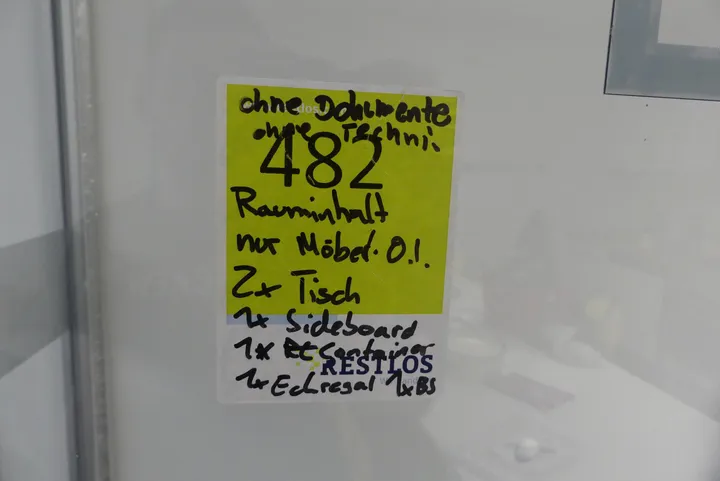 ohne Dokumente
ohne Techni.
482
Rauminhalt
nur Möbel. O.I.
2x Tisch
1x Sideboard
1x Container
RESTLOS
1x Eckregal 1xBS